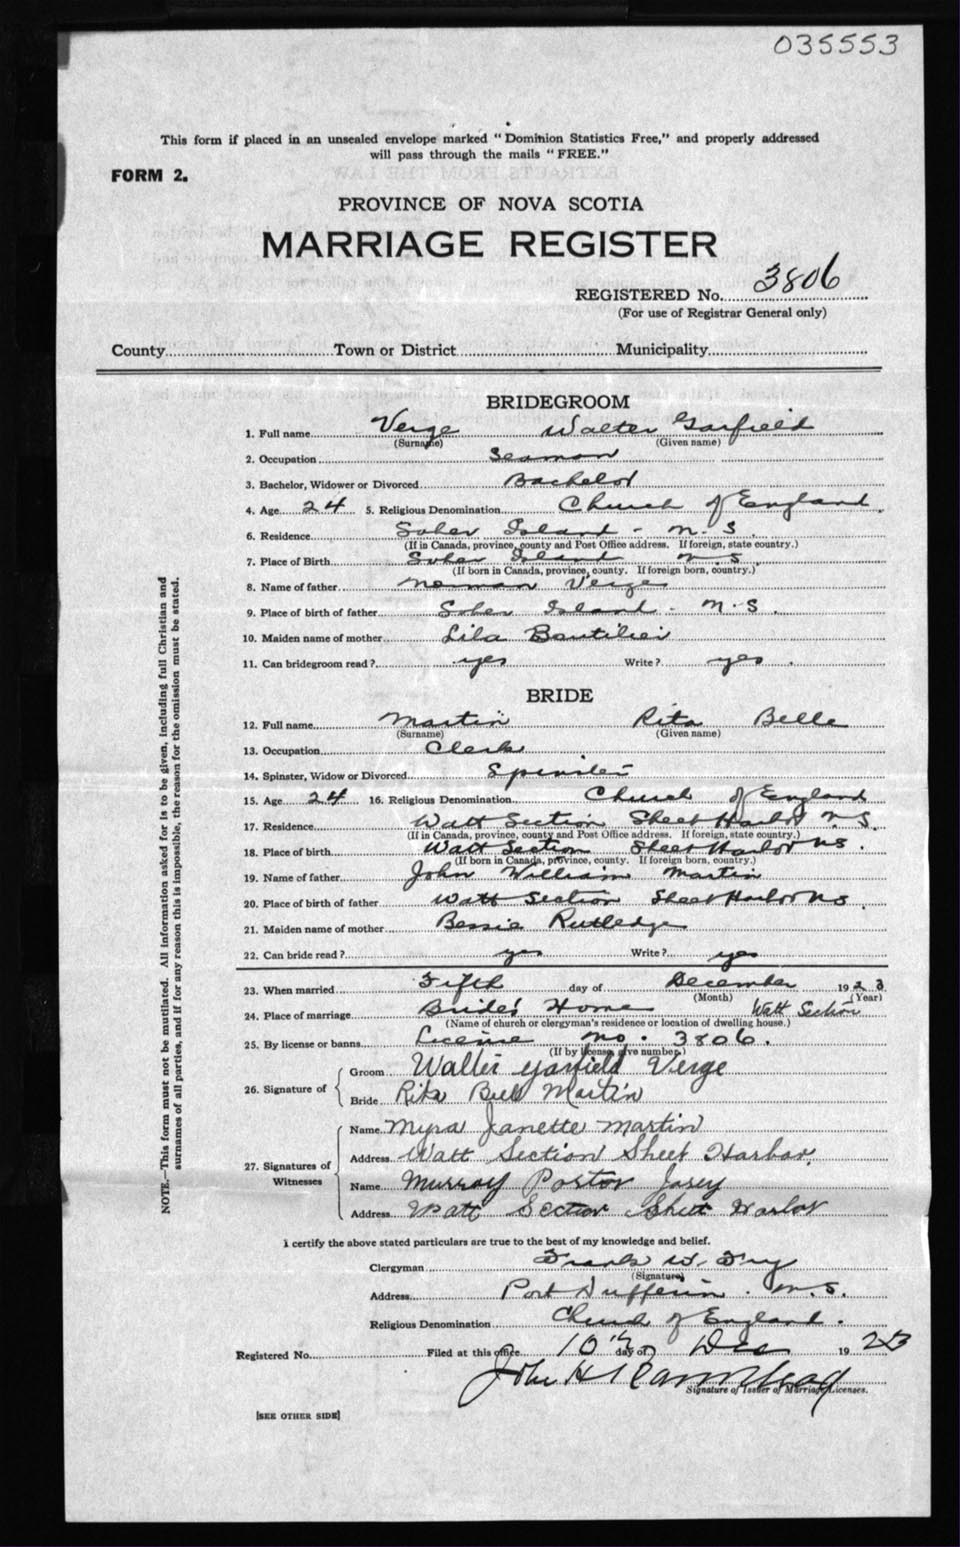 035553
This form if placed in an unsealed envelope marked "Dominion Statistics Free," and properly addressed
will pass through the mails "FREE."
FORM 2.
PROVINCE OF NOVA SCOTIA
MARRIAGE REGISTER
REGISTERED No. 3806
(For use of Registrar General only)
County Town or District Municipality
BRIDEGROOM
1. Full name Verge Walter Garfield
(Surname) (Given name)
2. Occupation Seaman
3. Bachelor, Widower or Divorced Bachelor
4. Age 24 5. Religious Denomination Church of England
6. Residence Sober Island - N.S.
(If in Canada, province, county and Post Office address. If foreign, state country.)
7. Place of Birth Sober Island N.S.
(If born in Canada, province, county. If foreign born, country.)
8. Name of father Norman Verge
9. Place of birth of father Sober Island - N.S.
10. Maiden name of mother Lila Boutilier
11. Can bridegroom read? yes Write? yes.
BRIDE
12. Full name Martin Rita Belle
(Surname) (Given name)
13. Occupation Clerk
14. Spinster, Widow or Divorced Spinster
15. Age 24 16. Religious Denomination Church of England
17. Residence Watt Section Sheet Harbor N.S.
(If in Canada, province, county and Post Office address. If foreign, state country.)
18. Place of birth Watt Section Sheet Harbor N.S.
(If born in Canada, province, county. If foreign born, country.)
19. Name of father John William Martin
20. Place of birth of father Watt Section Sheet Harbor N.S.
21. Maiden name of mother Bessie Rutledge
22. Can bride read? yes Write? yes
23. When married Fifth day of December 1923
(Month) (Year)
24. Place of marriage Bride's Home Watt Section
(Name of church or clergyman's residence or location of dwelling house.)
25. By license or banns License No. 3806.
(If by license, give number.)
26. Signature of
Groom Walter Garfield Verge
Bride Rita Bell Martin
27. Signatures of Witnesses
Name Myra Janette Martin
Address Watt Section Sheet Harbor
Name Murray Porter Josey
Address Watt Section Sheet Harbor
I certify the above stated particulars are true to the best of my knowledge and belief.
Clergyman Frank W. Fry
(Signature)
Address Port Dufferin. N.S.
Religious Denomination Church of England.
Registered No. Filed at this office 10th day of Dec 1923
John H
Signature of Issuer of Marriage Licenses.
[SEE OTHER SIDE]
NOTE.—This form must not be mutilated. All information asked for is to be given, including full Christian and
surnames of all parties, and if for any reason this is impossible, the reason for the omission must be stated.